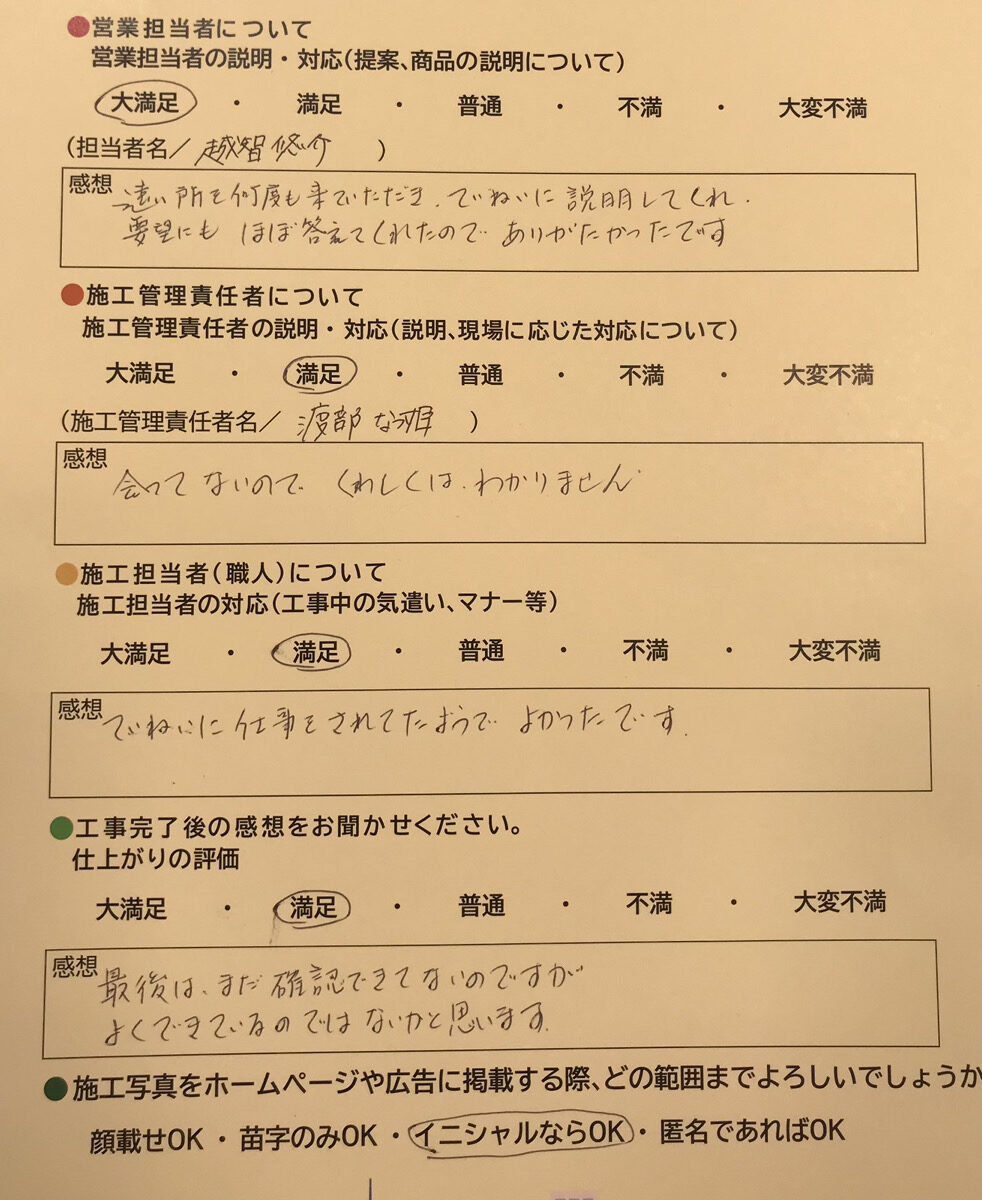 ●営業担当者について
営業担当者の説明・対応(提案、商品の説明について)
大満足 ・ 満足 ・ 普通 ・ 不満 ・ 大変不満
(担当者名/ 越智悠介 )
感想
遠い所を何度も来ていただき、ていねいに説明してくれ、
要望にも ほぼ答えてくれたので ありがたかったです
●施工管理責任者について
施工管理責任者の説明・対応(説明、現場に応じた対応について)
大満足 ・ 満足 ・ 普通 ・ 不満 ・ 大変不満
(施工管理責任者名/ 渡部 )
感想
会ってないので くわしくは、わかりません
●施工担当者(職人)について
施工担当者の対応(工事中の気遣い、マナー等)
大満足 ・ 満足 ・ 普通 ・ 不満 ・ 大変不満
感想
ていねいに仕事をされてたようで よかったです.
●工事完了後の感想をお聞かせください。
仕上がりの評価
大満足 ・ 満足 ・ 普通 ・ 不満 ・ 大変不満
感想
最後は、まだ確認できてないのですが
よくできているのではないかと思います.
●施工写真をホームページや広告に掲載する際、どの範囲までよろしいでしょうか
顔載せOK ・ 苗字のみOK ・ イニシャルならOK ・ 匿名であればOK